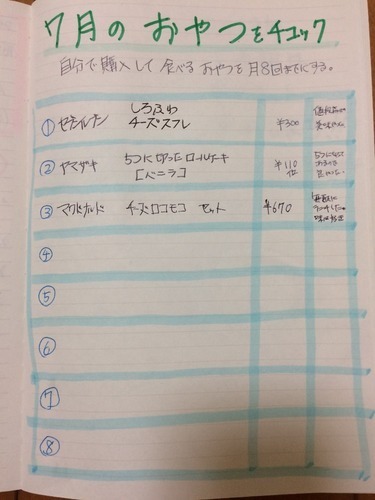 7月の おやつをチェック
自分で購入して食べるおやつを月8回までにする。
① セブンイレブン しろふわ チーズスフレ ¥300
② ヤマザキ 5つに切ったロールケーキ [バニラ] ¥110 位
③ マクドナルド チーズロコモコ セット ¥670
④
⑤
⑥
⑦
⑧